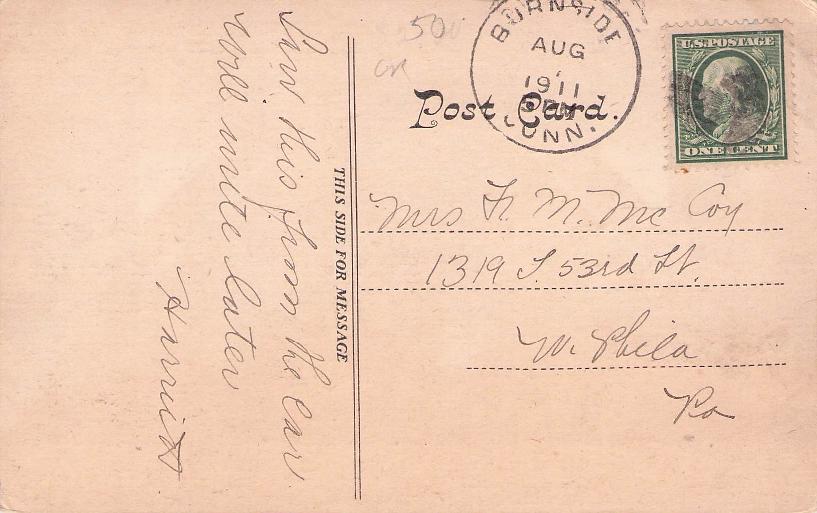 Saw this from the car.
Will write later
Harriet
THIS SIDE FOR MESSAGE
50
BURNSIDE
AUG
1911
CONN.
Post Card.
U.S. POSTAGE
ONE CENT
Mrs F. M. Mc Coy
1319 S. 53rd St.
W. Phila
Pa